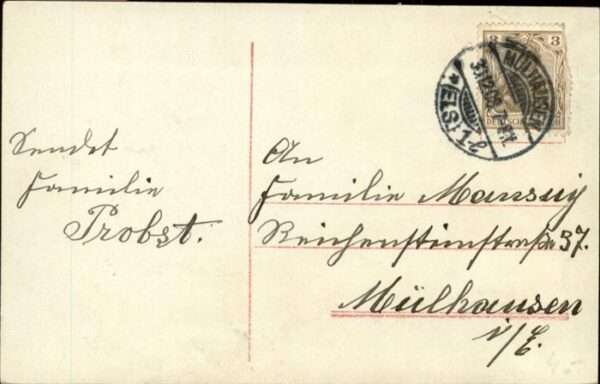 Sendet
Familie
Probst.
An
Familie Mansuy
Reichensteinstraße 37.
Mülhausen
i/E.
3 3
MÜLHAUSEN
*(ELS.)1*